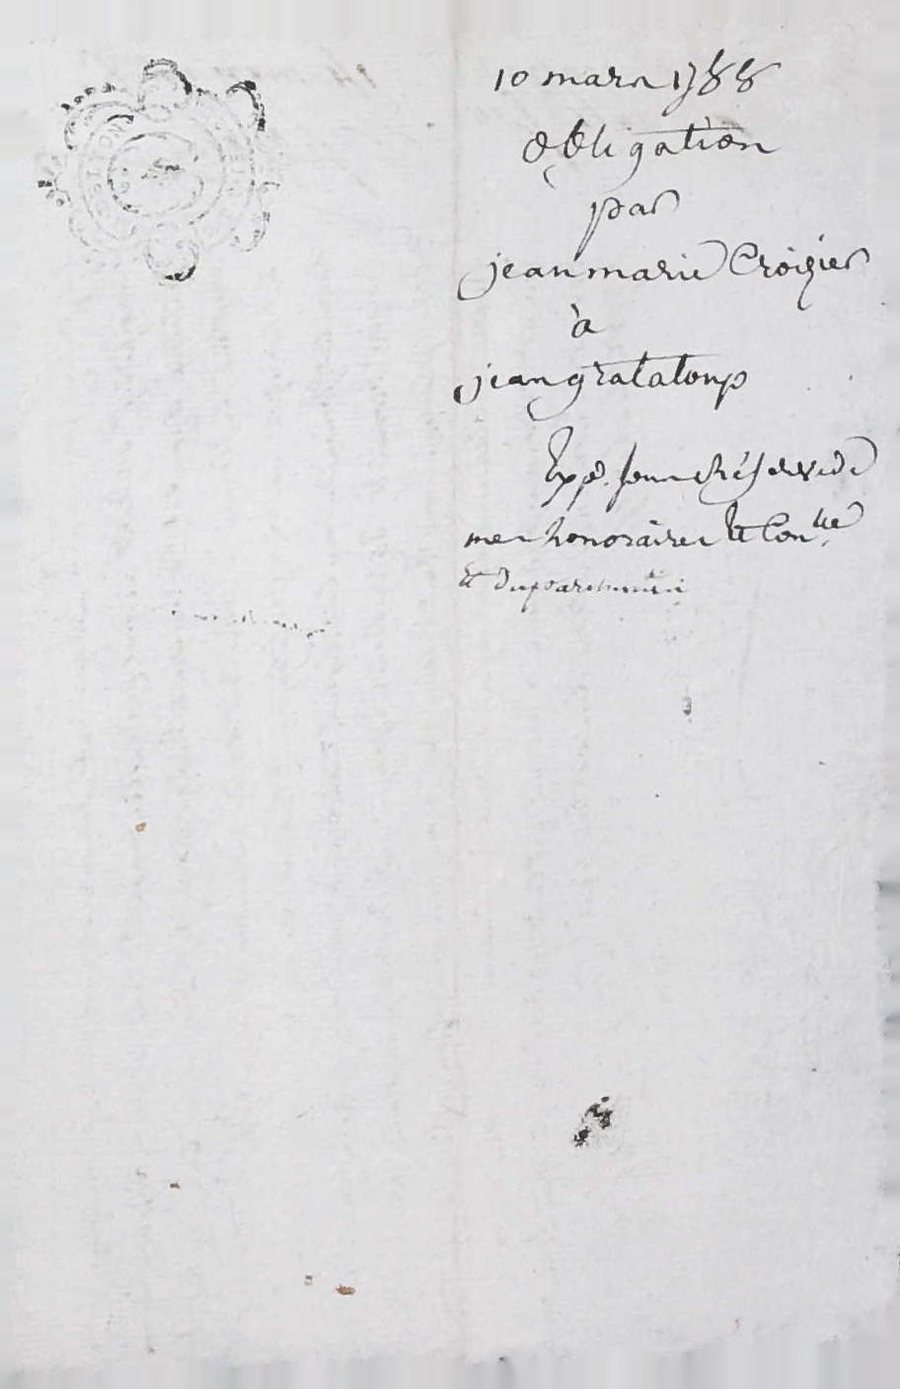 10 mars 1788
obligation
par
jean marie Croizier
à
jean grataloup
Exp. sous réserve de
mes honoraires et Con.lle
et du parchemin